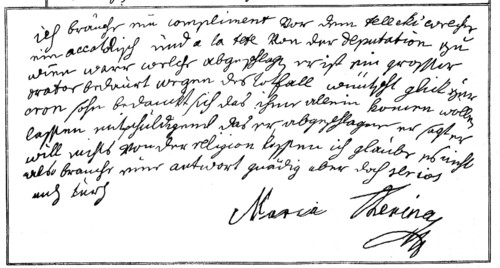 ich brauche ein compliment vor dem tellecki welcher
ein accatolisch und a la tete von der deputation zu
wienn ware welche abgeschlagen er ist ein grosser
orator bedaurt wegen des totfall wünscht glück zur
cron sohn bedanckt sich das ihm allein komen wollen
lassen entschuldigend das er abgeschlagen er sagt er
will nichts von der religion lassen ich glaube es nicht
also brauche eine antwort gnädig aber doch
und kurtz
Maria Theresia